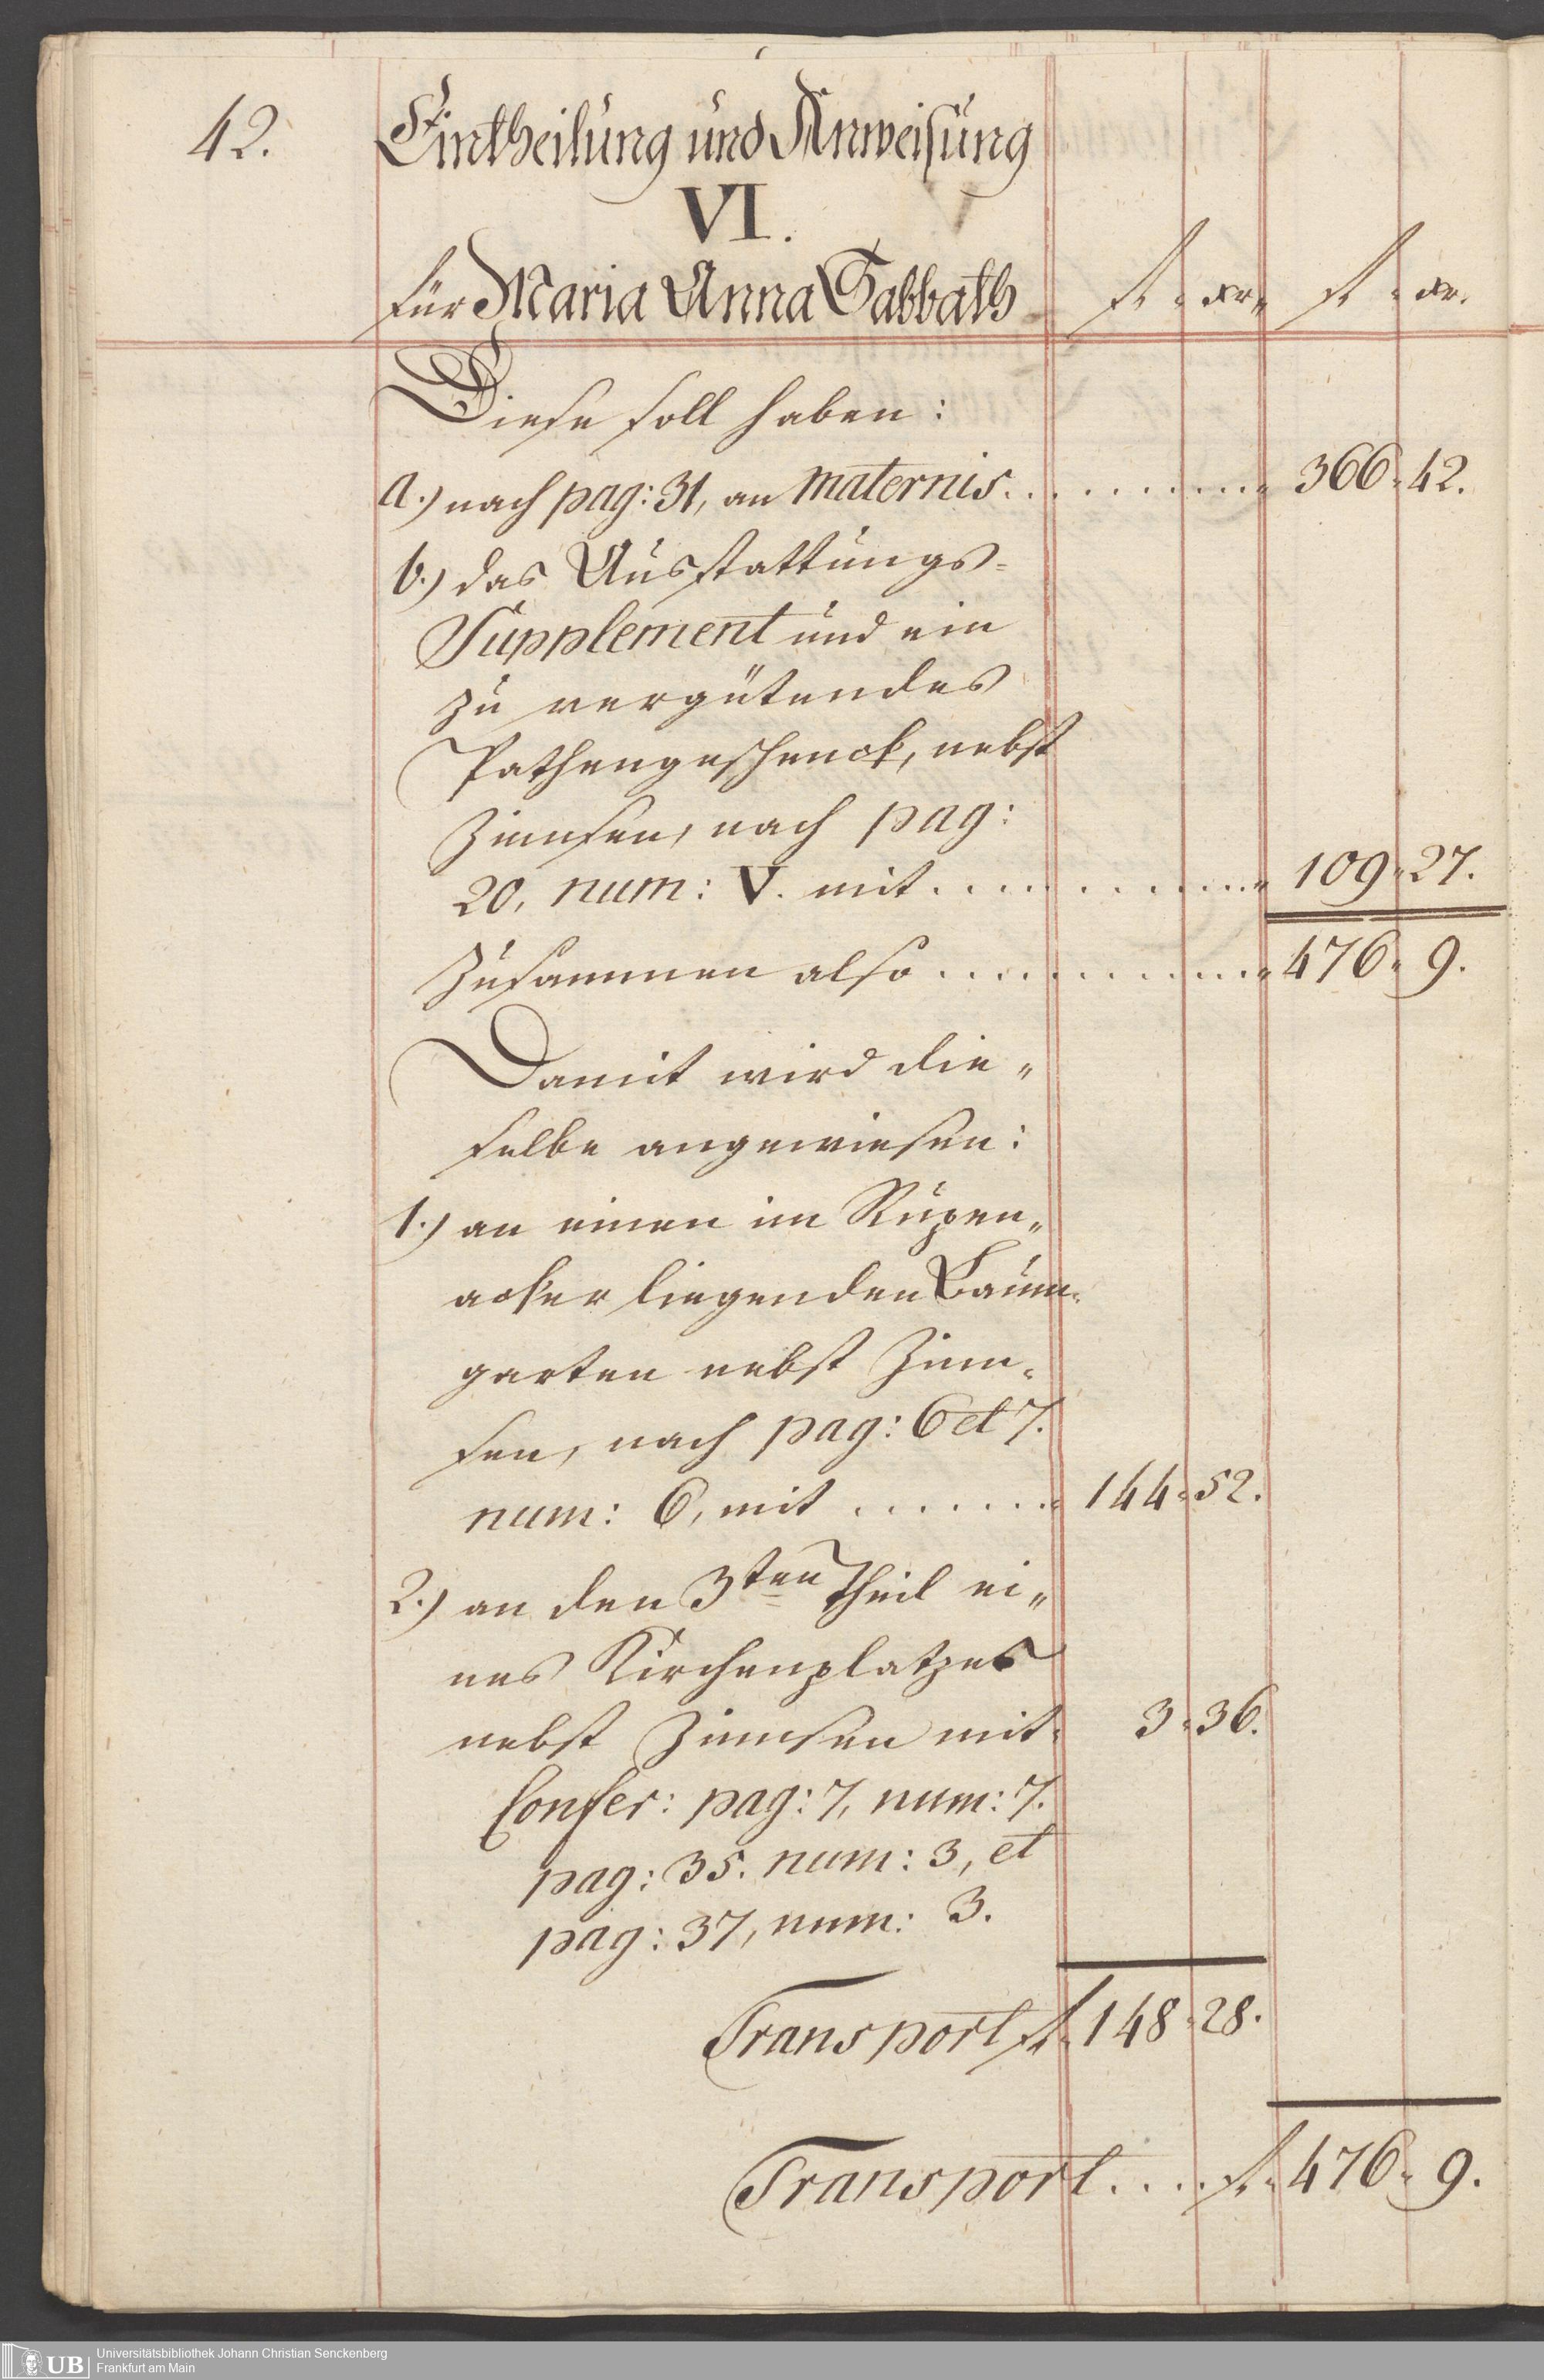 42.
Eintheilung und Anweisung
VI.
für Maria Anna Sabbath
fl. xr. fl. xr.
Diese soll haben:
a.) nach pag: 31, an maternis. . . . . . . . . . 366 " 42.
b.) das Ausstattungs-
Supplement und ein
zu vergütendes
Pathengeschenck, nebst
Zinnsen, nach pag:
20, num: V. mit . . . . . . . . . . 109 " 27.
Zusammen also . . . . . . . . . . 476 " 9.
Damit wird die"
selbe angewiesen:
1.) an einen im Rupen"
acker liegenden Baum-
garten nebst Zinn-
sen, nach pag: 6 et 7.
num: 6, mit . . . . . . . 144 " 52.
2.) an den 3ten Theil ei"
nes Kirchenplatzes
nebst Zinnsen mit 3 " 36.
Confer: pag: 7, num: 7.
pag: 35. num: 3, et
pag: 37, num: 3.
Transport fl. 148 " 28.
Transport . . . . fl. 476 " 9.
UB Universitätsbibliothek Johann Christian Senckenberg
Frankfurt am Main